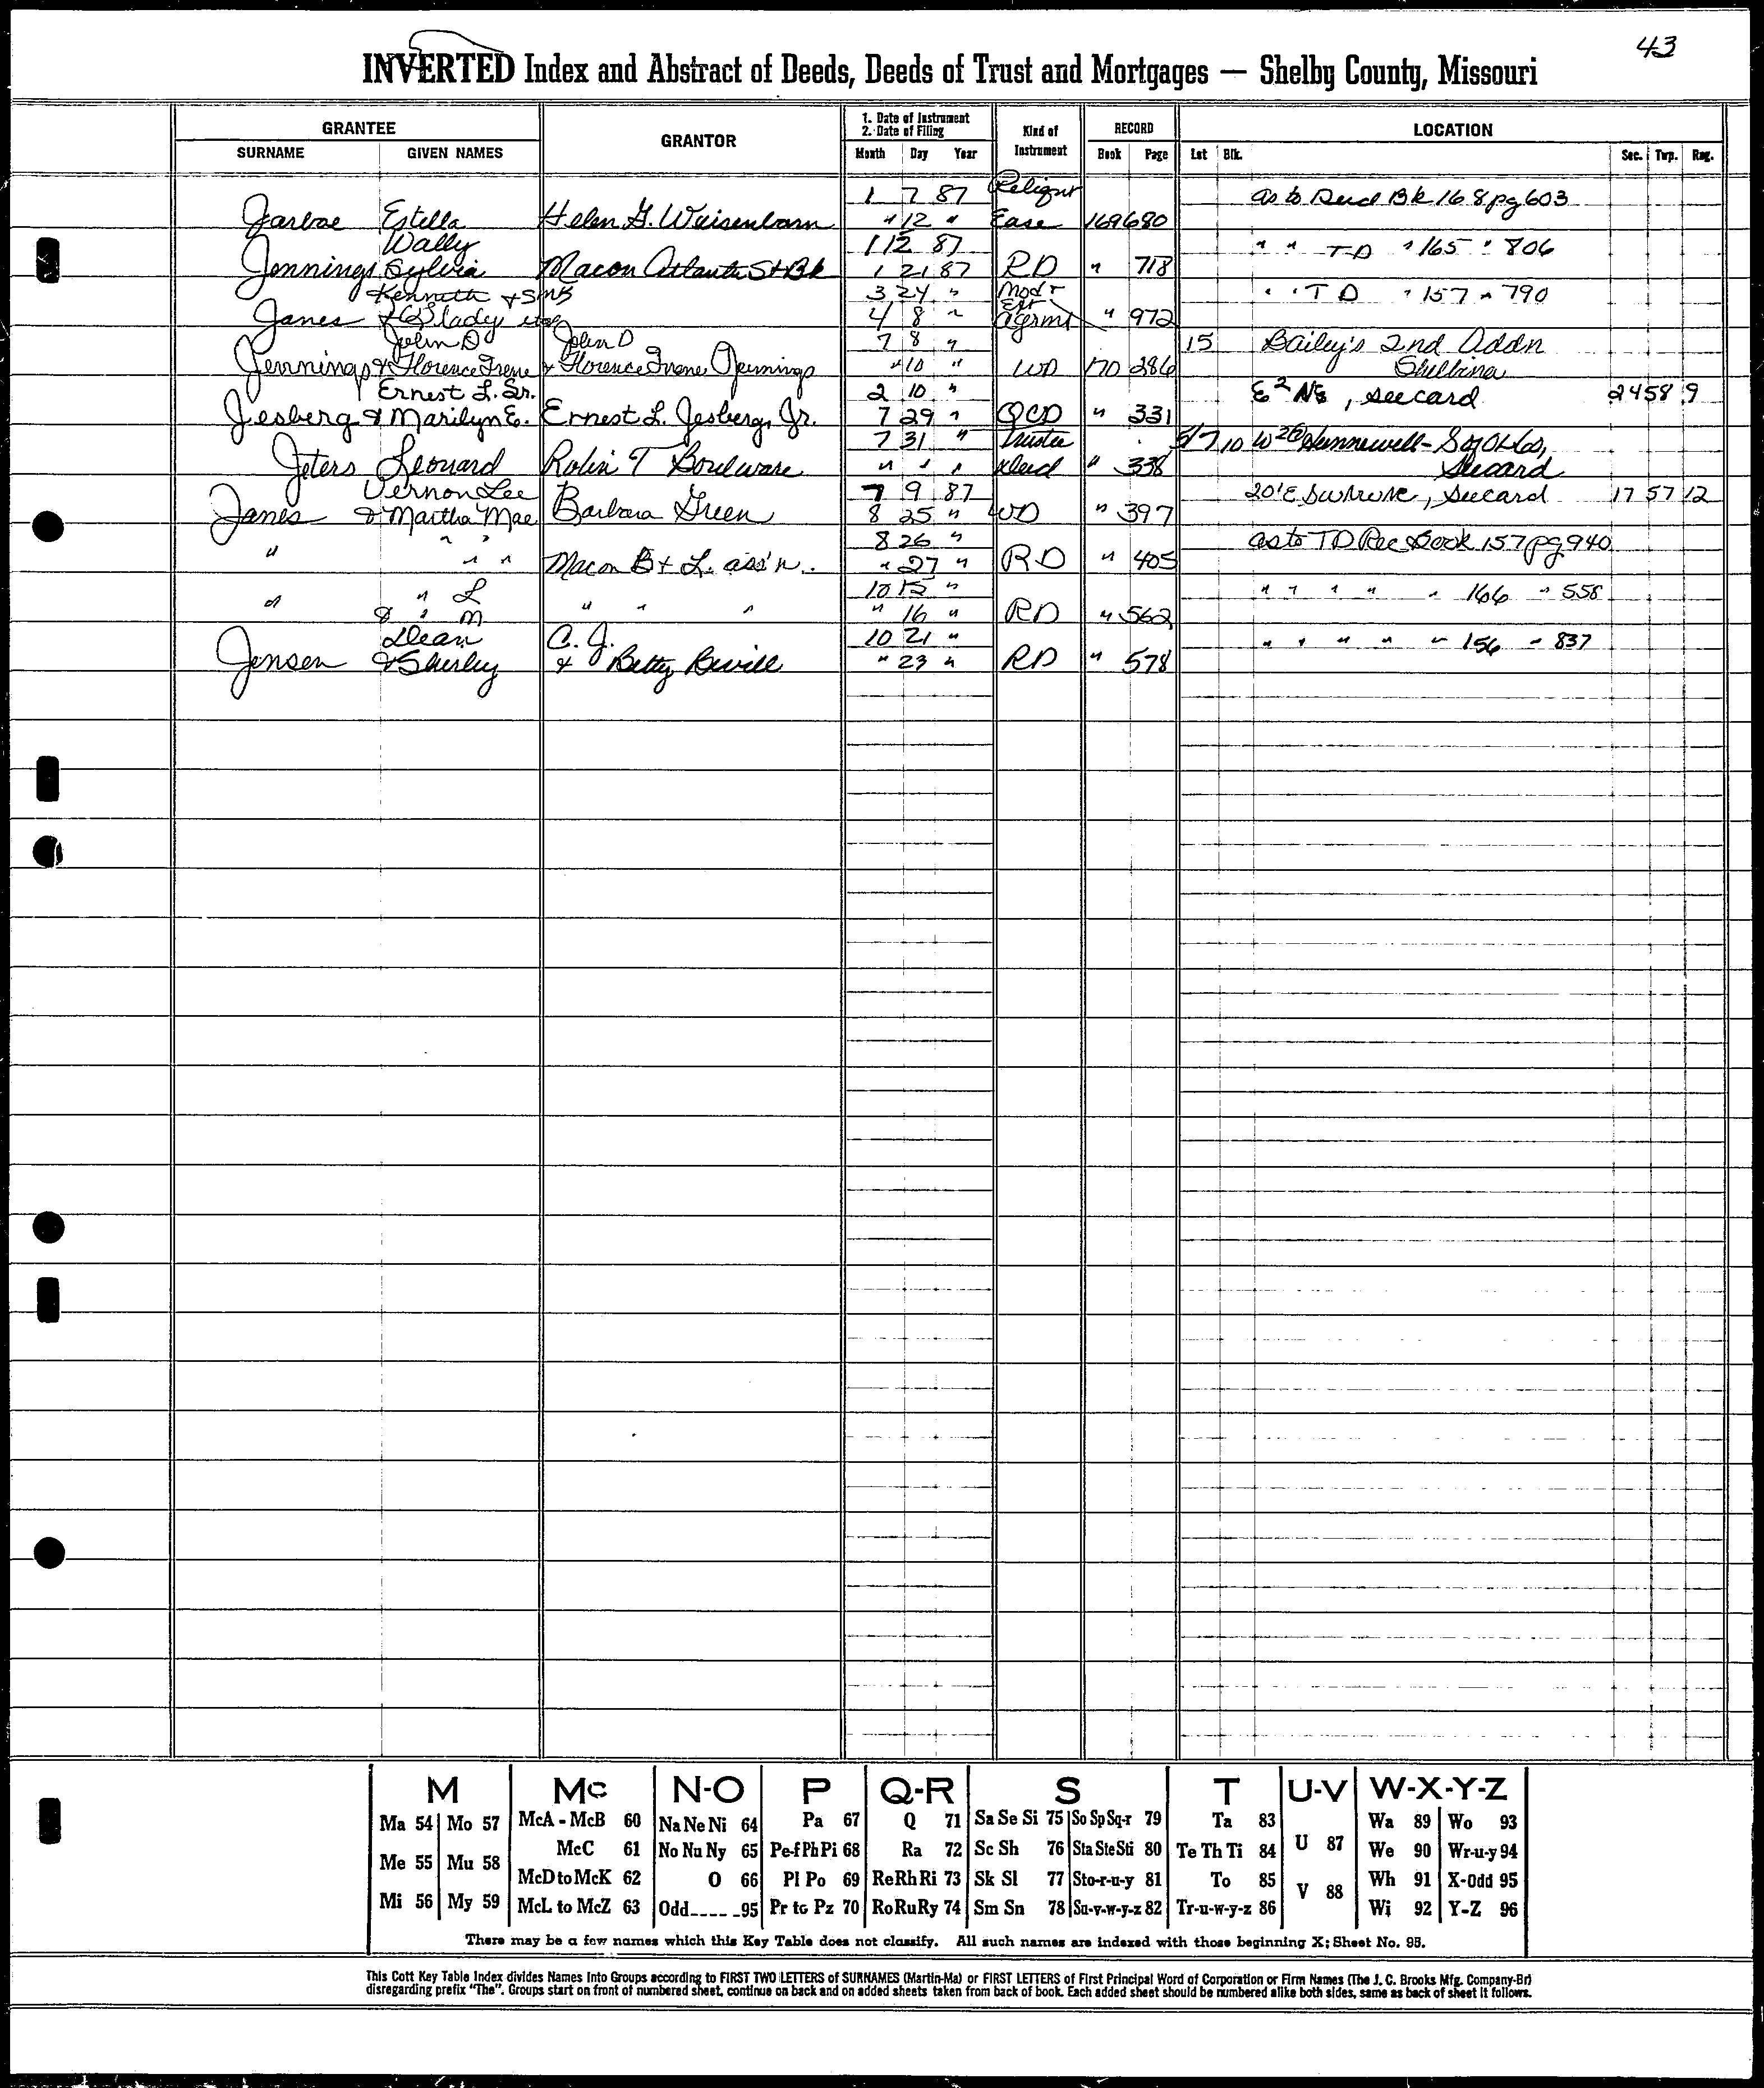 43
INVERTED Index and Abstract of Deeds, Deeds of Trust and Mortgages — Shelby County, Missouri
GRANTEE GRANTOR 1. Date of Instrument 2. Date of Filing Kind of Instrument RECORD LOCATION
SURNAME GIVEN NAMES Month Day Year Book Page Lot Blk. Sec. Twp. Rng.
1 7 87 Reliqut as to Deed Bk 168 pg 603
Jarboe Estella Helen G. Weisenborn " 12 " Ease 169 680
Wally 1 12 87 " " TD " 165 " 806
Jennings Sylvia Macon Atlanta St Bk 1 21 87 RD " 718
Kenneth + 3 24 " Mod + " " TD " 157 " 790
Janes & Glady etal 4 8 " Ext Agrmt " 972
John D John D 7 8 " 15 Bailey's 2nd Addn
Jennings & Florence Irene & Florence Irene Jennings " 10 " WD 170 286 Shelbina
Ernest L. Sr. 2 10 " E2 NE, see card 24 58 9
Jesberg & Marilyn E. Ernest L. Jesberg, Jr. 7 29 " QCD " 331
7 31 " Trustee 5/7 10 W 26 Hunnewell-
Jeters Leonard Robin T Boulware " " " deed " 338 see card
Vernon Lee 7 9 87 20' E , see card 17 57 12
Janes & Martha Mae Barbara Green 8 25 " WD " 397
" " 8 26 " as to TD Rec Book 157 pg 940
" " " Macon B + L. ass'n. " 27 " RD " 405
" L 10 15 " " " " " " 166 " 558
" & " M " " " " 16 " RD " 562
Dean C. J. 10 21 " " " " " " 156 " 837
Jensen & Shirley & Betty Bevill " 23 " RD " 578
M Mc N-O P Q-R S T U-V W-X-Y-Z
Ma 54 Mo 57 McA - McB 60 Na Ne Ni 64 Pa 67 Q 71 Sa Se Si 75 So Sp Sq-r 79 Ta 83 Wa 89 Wo 93
McC 61 No Nu Ny 65 Pe-f Ph Pi 68 Ra 72 Sc Sh 76 Sta Ste Sti 80 Te Th Ti 84 U 87 We 90 Wr-u-y 94
Me 55 Mu 58 McD to McK 62 O 66 Pl Po 69 Re Rh Ri 73 Sk Sl 77 Sto-r-u-y 81 To 85 Wh 91 X-Odd 95
Mi 56 My 59 McL to McZ 63 Odd_____95 Pr to Pz 70 Ro Ru Ry 74 Sm Sn 78 Su-v-w-y-z 82 Tr-u-w-y-z 86 V 88 Wi 92 Y-Z 96
There may be a few names which this Key Table does not classify. All such names are indexed with those beginning X; Sheet No. 95.
This Cott Key Table Index divides Names into Groups according to FIRST TWO LETTERS of SURNAMES (Martin-Ma) or FIRST LETTERS of First Principal Word of Corporation or Firm Names (The J. C. Brooks Mfg. Company-Br)
disregarding prefix "The". Groups start on front of numbered sheet, continue on back and on added sheets taken from back of book. Each added sheet should be numbered alike both sides, same as back of sheet it follows.